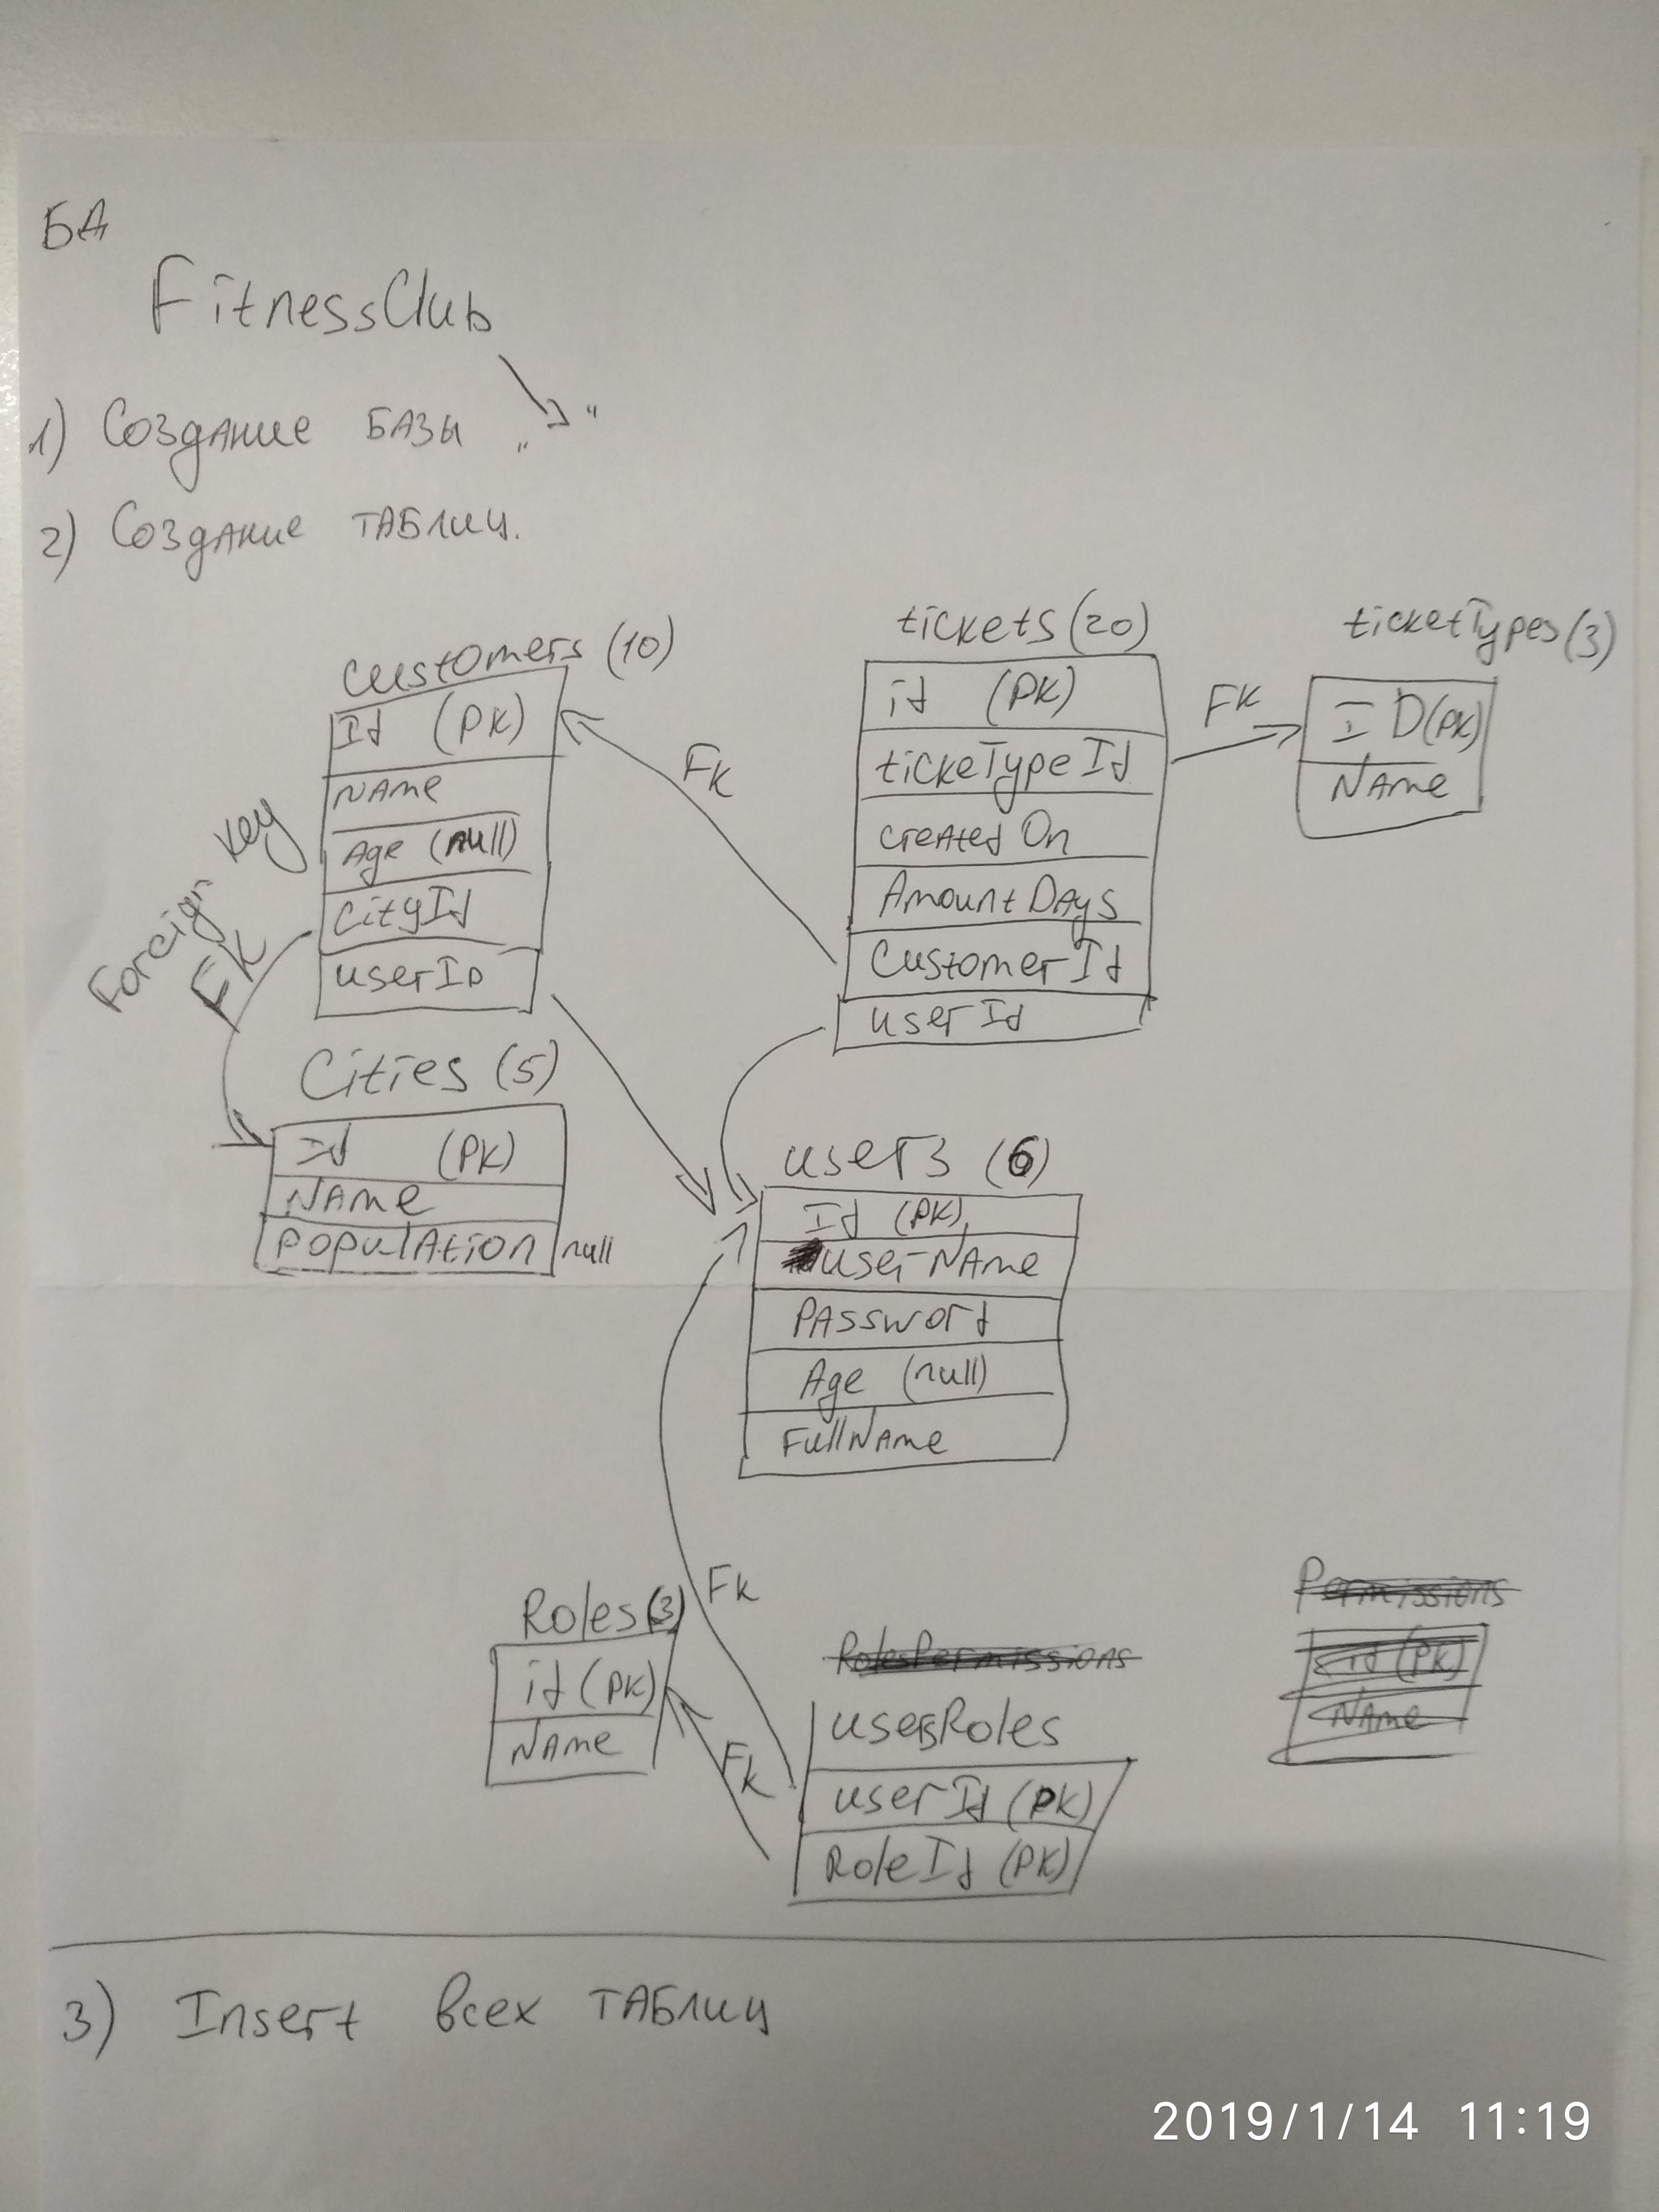 БД
FitnessClub
1) Создание БАЗЫ „ “
2) Создание ТАБЛИЦ.
Customers (10)
Id (PK)
NAme
Age (null)
CityId
userID
Foreign key
FK
Cities (5)
Id (PK)
NAme
POPULATION null
FK
tickets (20)
id (PK)
tickeTypeId
creAted On
AmountDAys
CustomerId
userId
FK
ticketTypes (3)
ID (PK)
NAme
users (6)
Id (PK)
userNAme
PAssword
Age (null)
FullNAme
Roles (3)
id (PK)
NAme
FK
FK
RolesPermissions
usersRoles
userId (PK)
RoleId (PK)
Permissions
id (PK)
NAme
3) Insert всех ТАБЛИЦ
2019/1/14 11:19